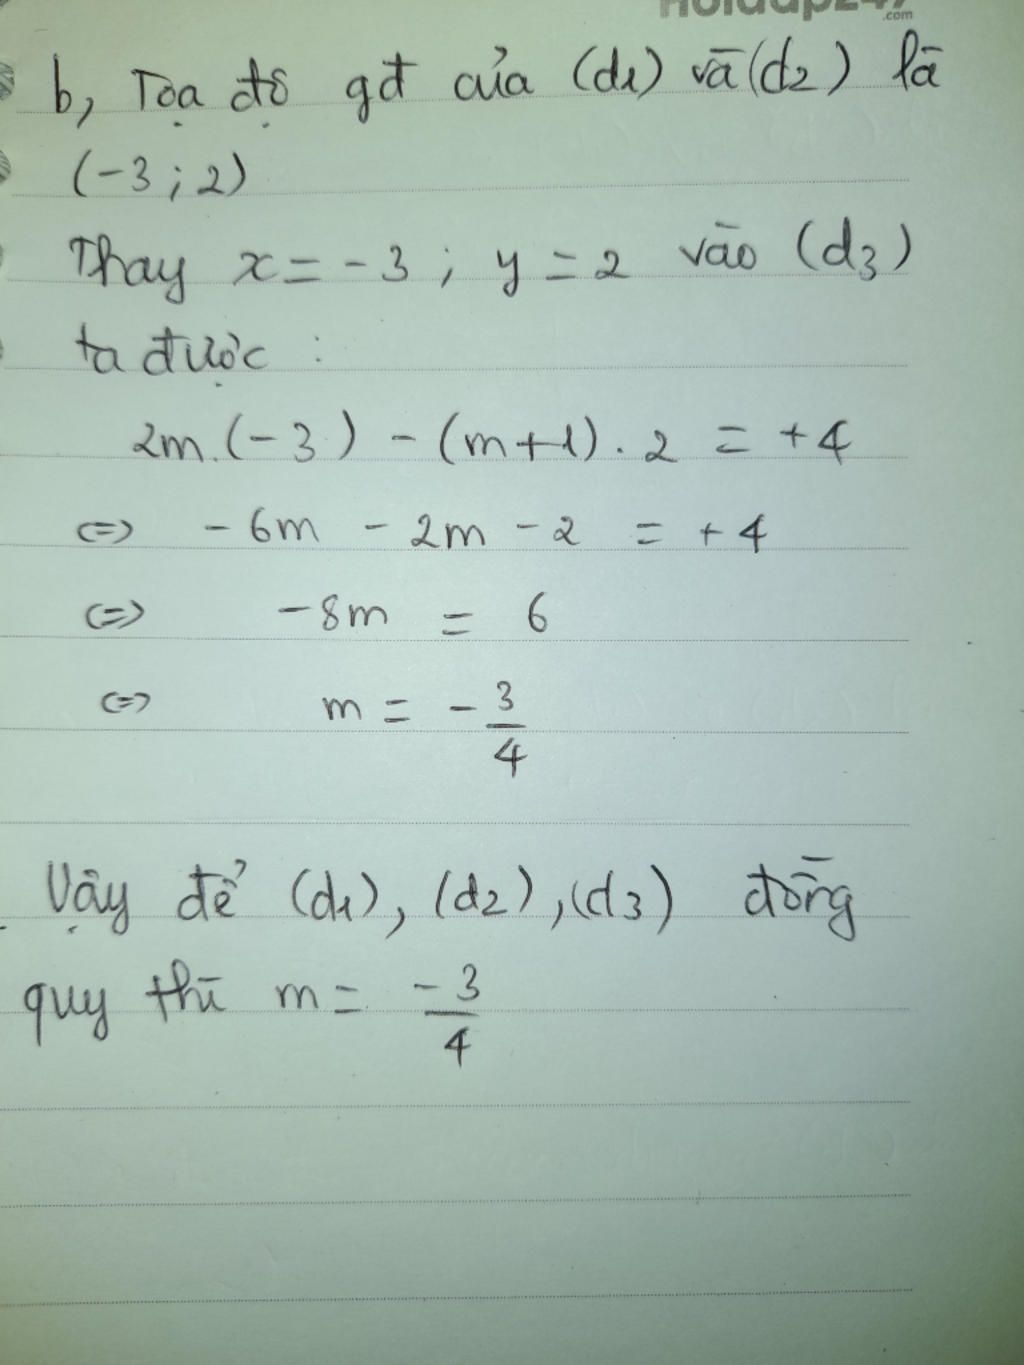 Hoidap247
.com
b, Tọa độ gđ của (d1) và (d2) là
(-3 ; 2)
Thay x = -3 ; y = 2 vào (d3)
ta được :
2m.(-3) - (m+1) . 2 = +4
<=> - 6m - 2m - 2 = + 4
<=> -8m = 6
<=> m = - 3/4
Vậy để (d1), (d2), (d3) đồng
quy thì m = -3/4